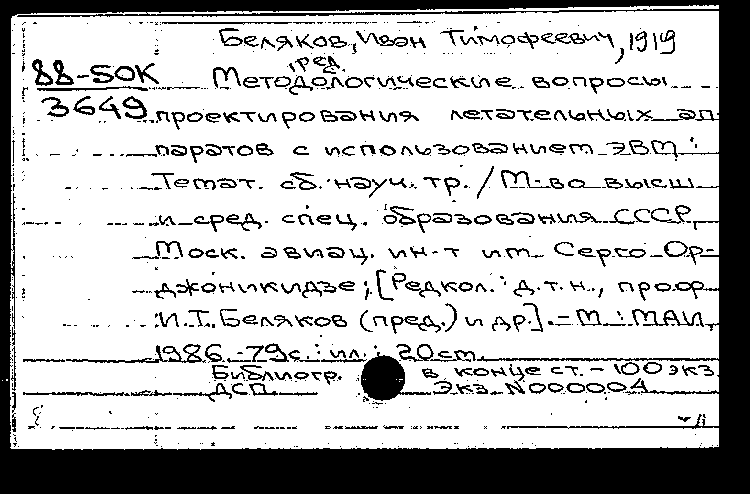 Беляков, Иван Тимофеевич, 1919
пред.
88-50К Методологические вопросы
3649 проектирования летательных ап-
паратов с использованием ЭВМ :
Темат. сб. науч. тр. / М-во высш.
и сред. спец. образования СССР,
Моск. авиац. ин-т им. Серго Ор-
джоникидзе; [Редкол.: д.т.н., проф.
И.Т. Беляков (пред.) и др.]. - М : МАИ,
1986. - 79 с. : ил. ; 20 см.
Библиогр. в конце ст. - 100 экз.
ДСП. Экз. N000004